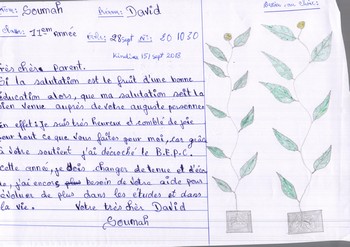 Nom: Soumah Prénom: David
Classe: 11ème année Date: 28 sept N°: 20 10 30
Kindia 15/sept 2013
Très chère parent.
Si la salutation est le fruit d'une bonne
éducation alors, que ma salutation soit la
bien venue auprès de votre auguste personne
En effet: Je suis très heureux et comblé de joie
pour tout ce que vous faites pour moi, car grâce
à votre soutient j'ai décroché le B.E.P.C.
cette année, je dois changer de tenue et d'éco
j'ai encore plus besoin de votre aide pour
évoluer de plus dans les études et dans
la vie. Votre très cher David
Soumah